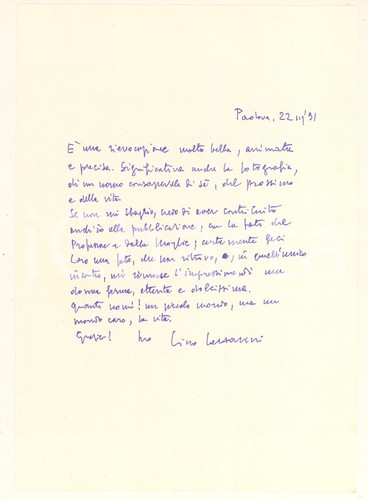 Padova, 22 III '91
È una rievocazione molto bella, animata
e precisa. Significativa anche la fotografia,
di un uomo consapevole di sé, del prossimo
e della vita.
Se non mi sbaglio, credo di aver contribuito
anch'io alla pubblicazione, con la foto del
Professore e della Moglie; certamente feci
loro una foto, che non ritrovo, e, in quell'unico
incontro, mi rimase l'impressione di una
donna ferma, attenta e dolcissima.
Quanti nomi! un piccolo mondo, ma un
mondo caro, la vita.
Grazie! Suo Lino